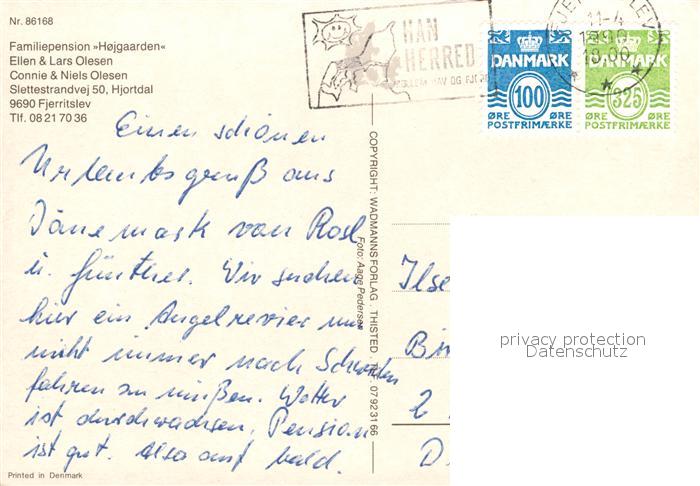 Nr. 86168
Familiepension »Højgaarden«
Ellen & Lars Olesen
Connie & Niels Olesen
Slettestrandvej 50, Hjortdal
9690 Fjerritslev
Tlf. 08 21 70 36
Einen schönen
Urlaubsgruß aus
Dänemark von Rosl
u. Günther. Wir suchen
hier ein Angelrevier um
nicht immer nach Schweden
fahren zu müßen. Wetter
ist durchwachsen, Pension
ist gut. Also auf bald.
Printed in Denmark
COPYRIGHT: WADMANNS FORLAG . THISTED . TLF. 07 923166
Foto: Aage Pedersen
HAN
HERRED
MELLEM HAV OG FJORD
11-4
18.00
DANMARK
100
ØRE ØRE
POSTFRIMÆRKE
DANMARK
325
ØRE ØRE
POSTFRIMÆRKE
Ilse
2
D
privacy protection
Datenschutz